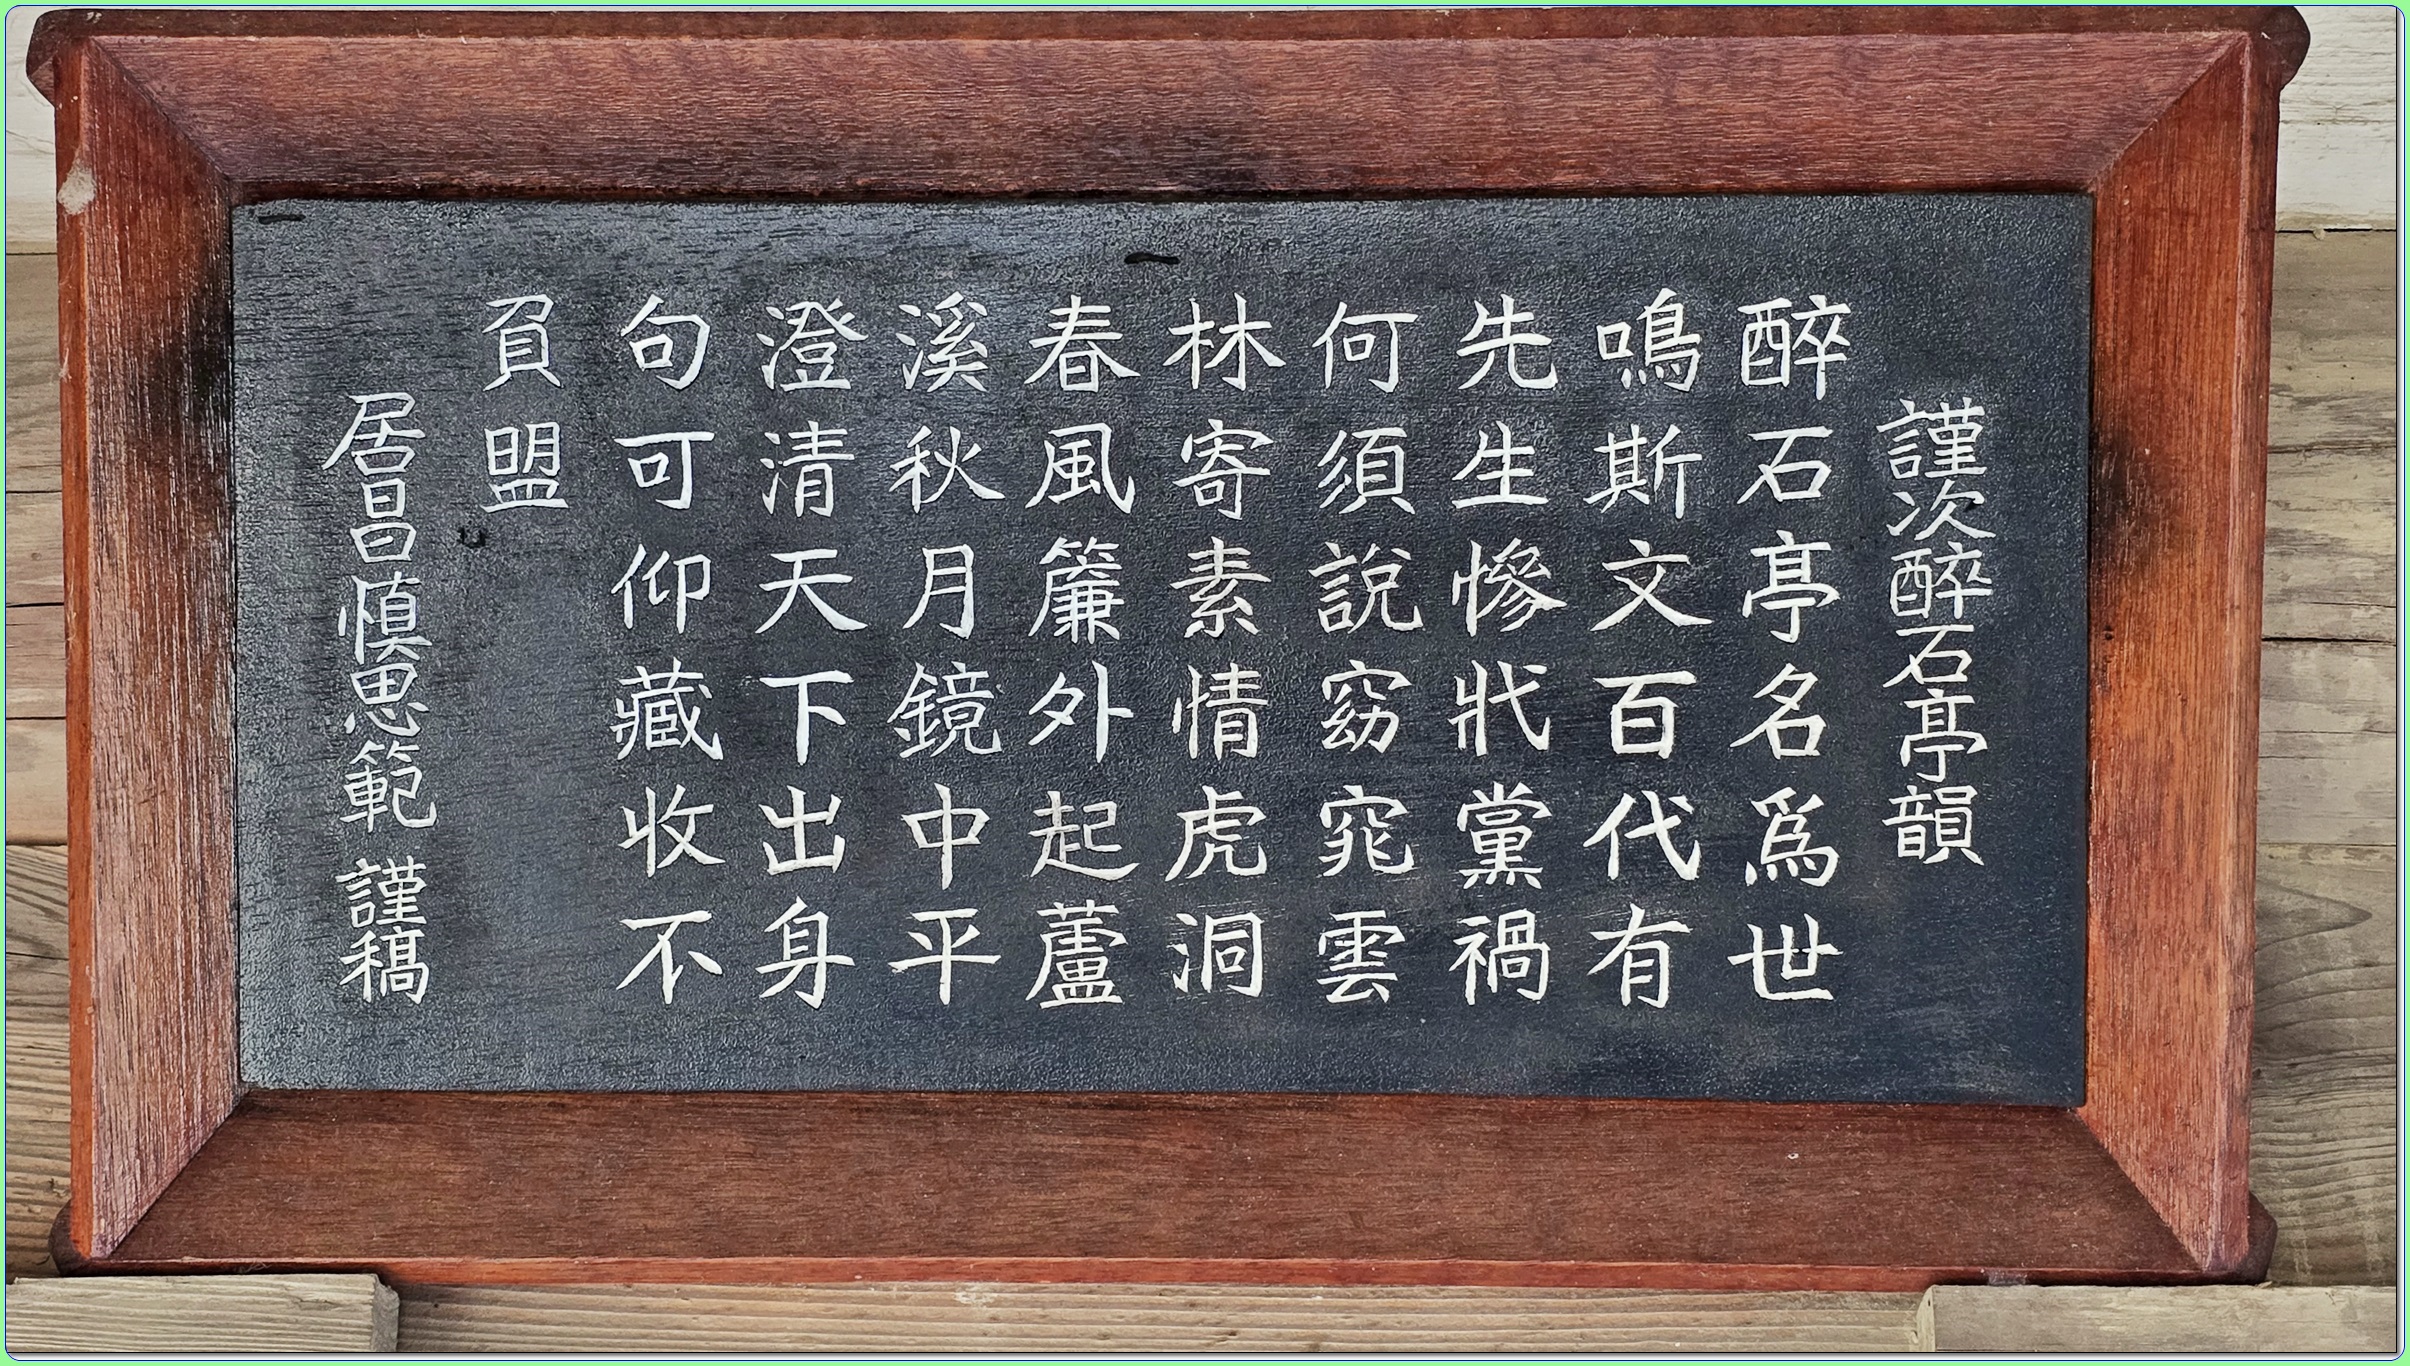 謹次醉石亭韻
醉石亭名爲世
鳴斯文百代有
先生慘戕黨禍
何須說窈窕雲
林寄素情虎洞
春風簾外起蘆
溪秋月鏡中平
澄清天下出身
句可仰藏收不
負盟
居昌愼思範 謹稿